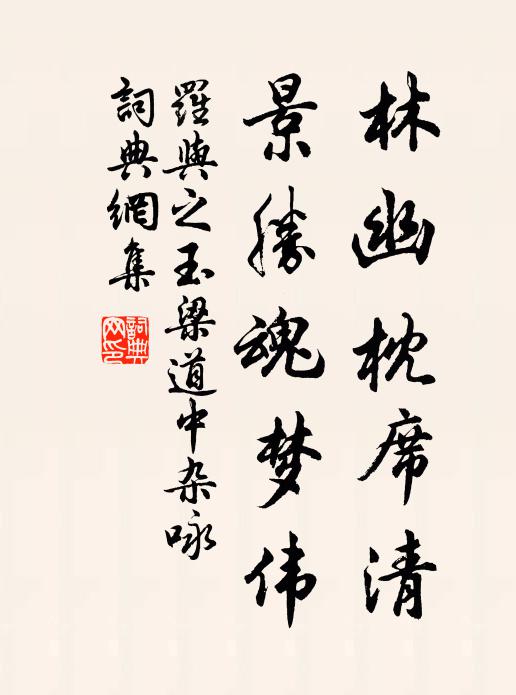 林幽枕席清
景勝魂梦伟
羅與之玉梁道中杂咏
詞典網集
詞典网印